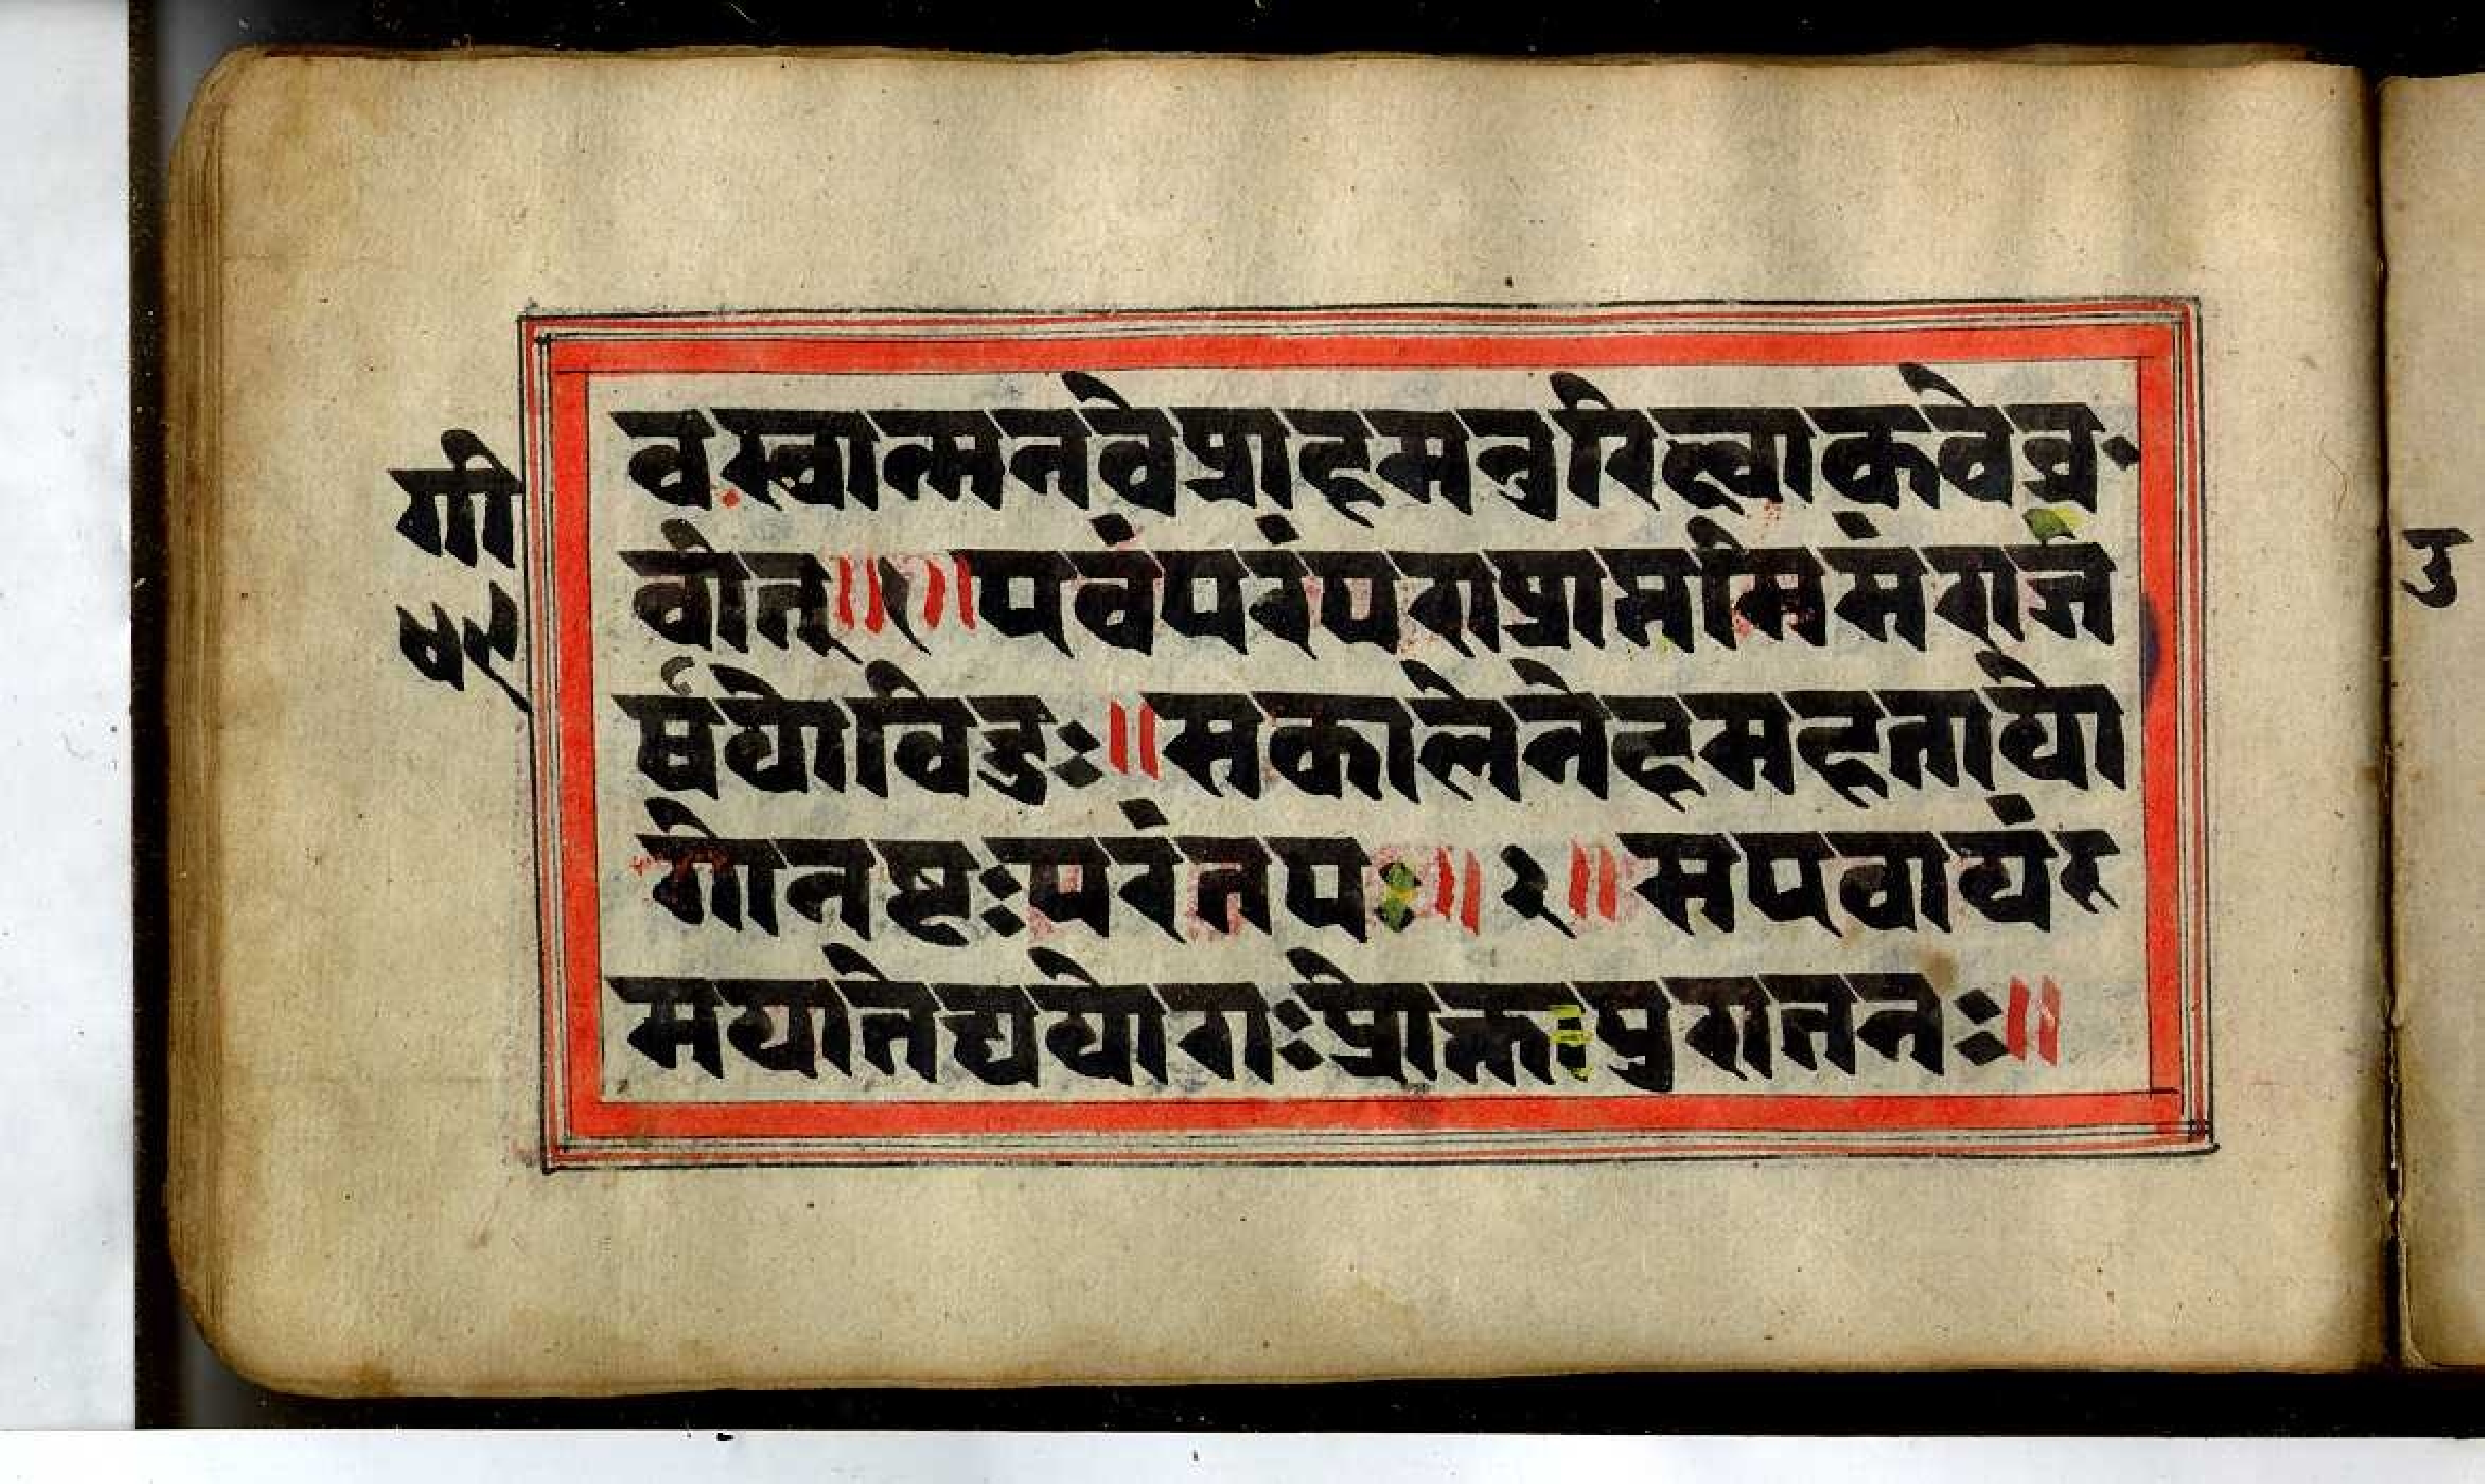 वस्वात्मनवेप्राहमनुरित्वाकवेब्र
वीत्॥१॥पवंपरंपराप्राप्तमिमंराज
र्षयोविदुः॥सकालेनेहमहतायो
गोनष्टःपरंतप॥२॥सपवायंम
मयातेद्ययोगःप्रोक्तःपुरातनः॥
गी
उ